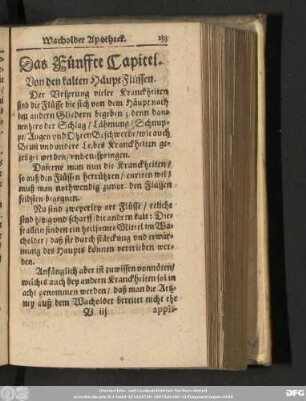 Wacholder Apotheck. 193
Das Fünffte Capitel.
Von den kalten Häupt Flüssen.
Der Vrsprung vieler Kranckheiten
sind die Flüsse die sich von dem Häupt nach
den andern Gliedern begeben / denn dan
nenhero der Schlag / Lähmung / Schnup-
pe / Augen vnd Ohren Beschwerde / wie auch
Brust vnd andere Leibes Kranckheiten ge-
zeüget werden / vnd entspringen.
Daferne man nun die Kranckheiten /
so auß den Flüssen herrühren / curiren wil /
muß man nothwendig zuvor den Flüssen
selbsten begegnen.
Nu sind zweyerley art Flüsse / etliche
sind hitzig vnd scharff / die andern kalt: Die-
se allen finden ein heilsames Mittel im Wa-
cholder / daß sie durch stärckung vnd erwär-
mung des Haupts können vertrieben wer-
den.
Anfänglich aber ist zu wissen vonnöten /
welches auch bey andern Kranckheiten sol in
acht genommen werden / daß man die Artz-
ney auß dem Wacholder bereitet nicht ehe
B iij appli-